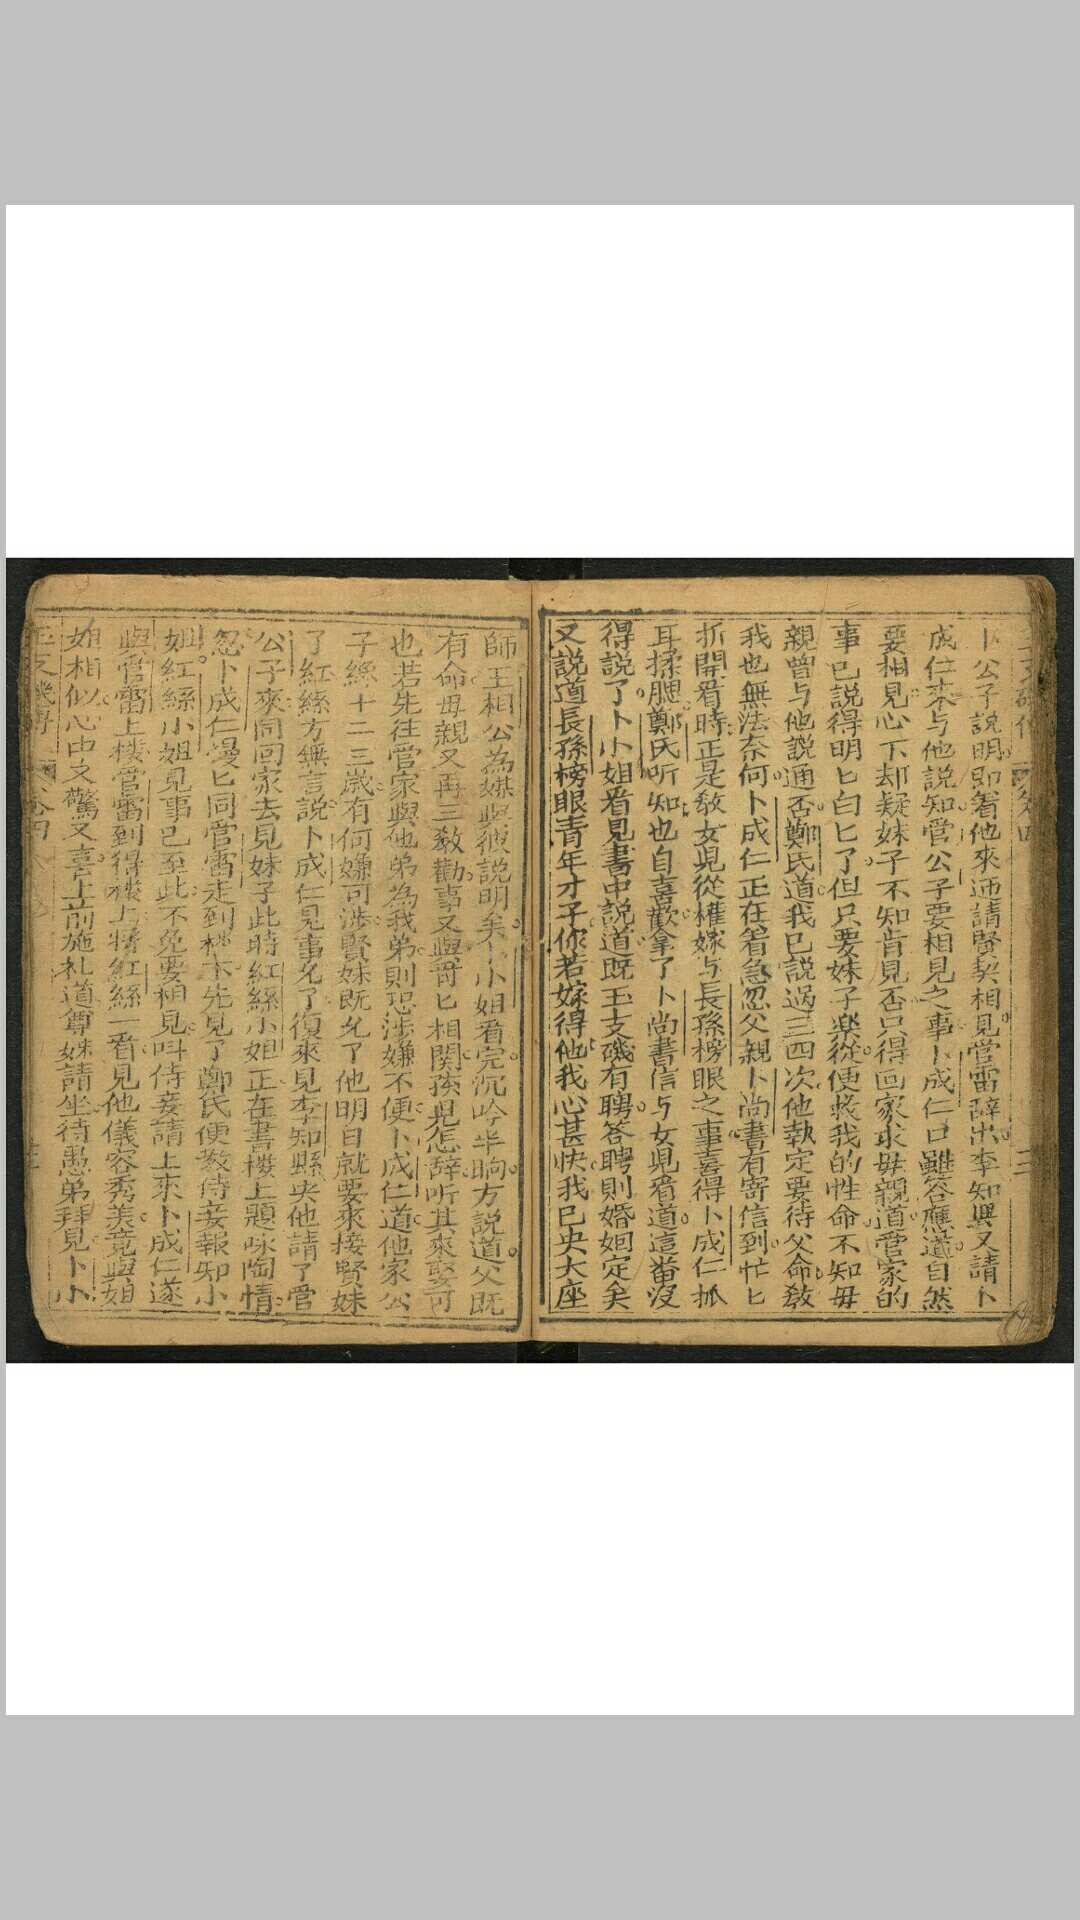 卜公子說明即着他來迊請賢契相見管雷辭出李知興又請卜
成仁來与他説知管公子要相見之事卜成仁口雖答應道自然
要相見心下却疑妹子不知肯見否只得回家求毋親道管家的
事已說得明匕白匕了但只要妹子樂從便救我的性命不知毋
親曽与他說通否鄭氏道我已説過三四次他執定要待父命敎
我也無法奈何卜成仁正在着急忽父親卜尚書有寄信到忙匕
折開看時正是敎女児從權嫁与長孫榜眼之事喜得卜成仁抓
耳揉腮鄭氏听知也自喜歡拿了卜尚書信与女児看道這畨没
得説了卜小姐看見書中説道既玉支磯有聘答聘則婚姻定矣
又説道長孫榜眼青年才子你若嫁得他我心甚快我已央大座
師王相公為媒與彼説明矣卜小姐看完沉吟半晌方説道父既
有命毋親又再三敎勸事又與哥匕相関孩児怎辞听其來娶可
也若先往管家與他弟為我弟則恐涉嫌不便卜成仁道他家公
子絲十二三歳有何嫌可涉賢妹既允了他明日就要來接賢妹
了紅絲方無言説卜成仁見事允了復來見李知縣央他請了管
公子來同回家去見妹子此時紅絲小姐正在書樓上題咏陶情
忽卜成仁慢匕同管雷走到樓下先見了鄭氏便敎侍妾報知小
姐紅絲小姐見事已至此不免要相見叫侍妾請上來卜成仁遂
與管雷上樓管雷到得樓上將紅絲一看見他儀容秀美竟與姐
姐相似心中又驚又喜上前施礼道尊姊請坐待愚弟拜見卜小